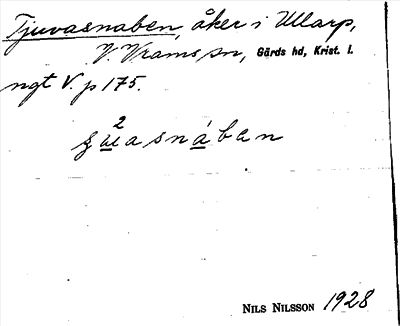 Tjuvasnaben, åker i Ullarp,
V. Vrams sn, Gärds hd, Krist. l.
ngt V. p 175.
2
ʒuasnában
NILS NILSSON 1928